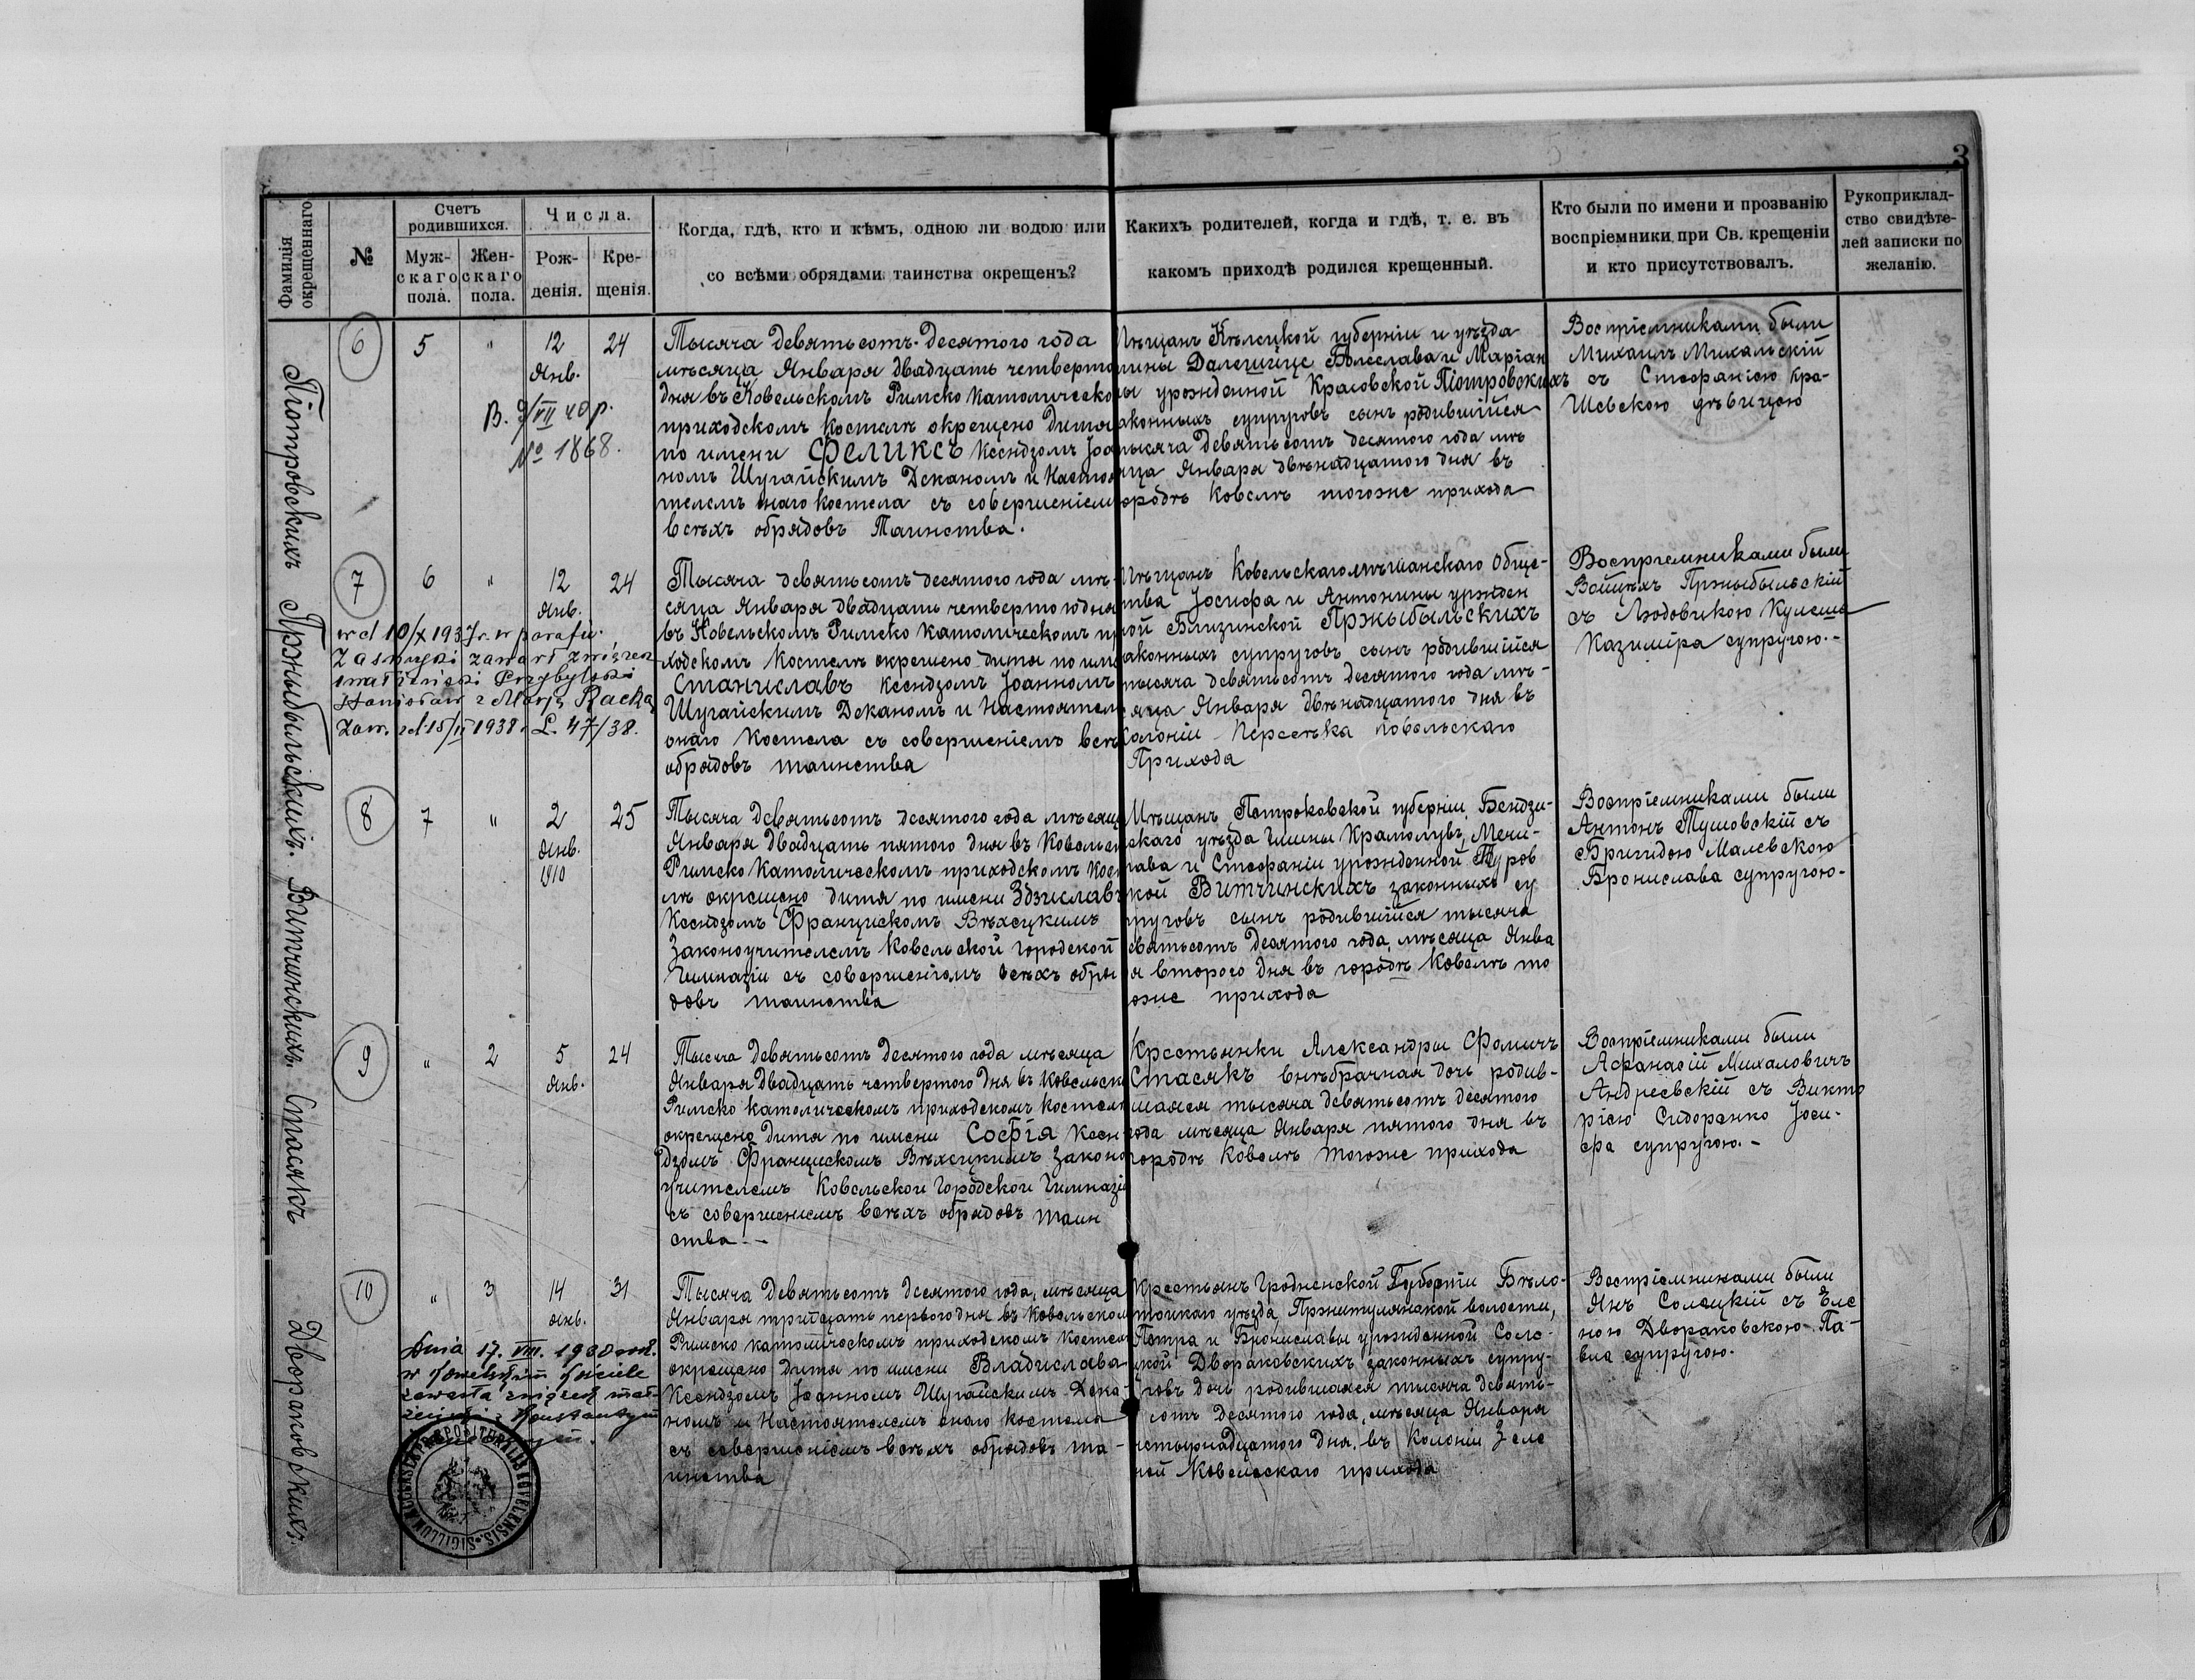 3
Фамилія окрещеннаго
№
Счетъ родившихся.
Муж-
скаго
пола.
Жен-
скаго
пола.
Числа.
Рож-
денія.
Кре-
щенія.
Когда, гдѣ, кто и кѣмъ, одною ли водою или
со всѣми обрядами таинства окрещенъ?
Какихъ родителей, когда и гдѣ, т. е. въ
какомъ приходѣ родился крещенный.
Кто были по имени и прозванію
воспріемники при Св. крещеніи
и кто присутствовалъ.
Рукоприклад-
ство свидѣте-
лей записки по
желанію.
Піотровскихъ
6
5
"
12
Янв.
24
В. 9/VII 40 р.
№ 1868.
Тысяча девятьсотъ десятого года
мѣсяца Января двадцать четверто
дня въ Ковельскомъ Римско Католическо
приходскомъ костелѣ окрещено дитя
по имени Феликсъ Ксендзомъ Іоа
номъ Шугайскимъ Деканомъ и Настоя
телемъ онаго Костела съ совершеніем
всѣхъ обрядовъ Таинства.
Мѣщанъ Кѣлецкой губерніи и уѣзда
мины Далешице Болеслава и Маріан
ы урожденной Красовской Піотровскихъ
аконныхъ супруговъ сынъ родившійся
тысяча девятьсотъ десятого года мѣ
яца Января двѣнадцатого дня въ
ородѣ Ковелѣ тогоже прихода
Воспріемниками были
Михаилъ Михальскій
съ Стефаніею Кра-
шевскою дѣвицою
Пржыбыльскихъ.
7
6
"
12
Янв.
24
w d 10/X 1937 r. w parafii.
zawarł związek
małżeński Przybylski
Stanisław z Marją Racką
Zaw. z d 15/II 1938. L. 47/38.
Тысяча девятьсотъ десятого года мѣ-
сяца Января двадцать четвертого дня
въ Ковельскомъ Римско Католическомъ п
ходскомъ Костелѣ окрещено дитя по име
Станиславъ Ксендзомъ Іоанномъ
Шугайскимъ Деканомъ и Настоятел
онаго Костела съ совершеніемъ всѣ
обрядовъ таинства
Мѣщанъ Ковельскаго мѣщанскаго Обще-
тва Іосифа и Антонины урожден
ной Близинской Пржыбыльскихъ
аконныхъ супруговъ сынъ родившійся
тысяча девятьсотъ десятого года мѣ-
сяца Января двѣнадцатого дня въ
Колоніи Пересѣка Ковельскаго
Прихода
Воспріемниками были
Войцѣхъ Пржыбыльскій
съ Людовикою Кулеша
Казиміра супругою.-
Витчинскихъ.
8
7
"
2
Янв.
1910
25
Тысяча девятьсотъ десятого года мѣсяц
Января двадцать пятого дня въ Ковельс
Римско Католическомъ приходскомъ Кос
лѣ окрещено дитя по имени Здзиславъ
Ксендзомъ Францискомъ Вѣхецкимъ
Законоучителемъ Ковельской Городской
Гимназіи съ совершеніемъ всѣхъ обря
довъ таинства
Мѣщанъ Петроковской губерніи, Бендзи-
скаго уѣзда Гмины Крамолувъ, Мечи-
лава и Стефаніи урожденной Туров
кой Витчинскихъ законныхъ су
пруговъ сынъ родившійся тысяча
евятьсотъ десятого года, мѣсяца Янва
я второго дня въ городѣ Ковелѣ то
оже прихода
Воспріемниками были
Антонъ Тушовскій съ
Бригидою Малевскою
Бронислава супругою.-
Стасякъ
9
"
2
5
Янв.
24
Тысяча девятьсотъ десятого года мѣсяца
Января двадцать четвертого дня въ Ковельско
Римско католическомъ приходскомъ Костел
окрещено дитя по имени Софія Ксен
дзомъ Францискомъ Вѣхецкимъ Законо
учителемъ Ковельской Городской Гимназі
съ совершеніемъ всѣхъ обрядовъ таин
ства.-
Крестьянки Александры Фоминъ
Стасякъ внѣбрачная дочь родив-
шаяся тысяча девятьсотъ десятого
года мѣсяца Января пятого дня въ
городѣ Ковелѣ тогоже прихода
Воспріемниками были
Афанасій Михаловичъ
Андреевскій съ Викто
ріею Сидоренко Іоси-
фа супругою.-
Двораковскихъ
10
"
3
14
янв.
31
Dnia 17. VIII. 1930 rok.
w Kowelskim kościele
zawarła związek mał-
Тысяча девятьсотъ десятого года, мѣсяца
Января тритцать первого дня въ Ковельском
Римско католическомъ приходскомъ Костел
окрещено дитя по имени Владислава
Ксендзомъ Іоанномъ Шугайскимъ Дека-
номъ и Настоятелемъ онаго Костела
съ совершеніемъ всѣхъ обрядовъ та-
инства
Крестьянъ Гродненской Губерніи Бѣло-
стокскаго уѣзда, Волости,
Петра и Брониславы урожденной Соле-
цкой Двораковскихъ законныхъ супру-
говъ дочь родившаяся тысяча девять-
сотъ десятого года, мѣсяца Января
четырнадцатого дня, въ Колоніи Зеле
ной Ковельскаго прихода
Воспріемниками были
Янъ Солецкій съ Еле
ною Двораковскою Па-
вла супругою.
SIGILLUM PRAEPOSITURALIS KOVELENSIS